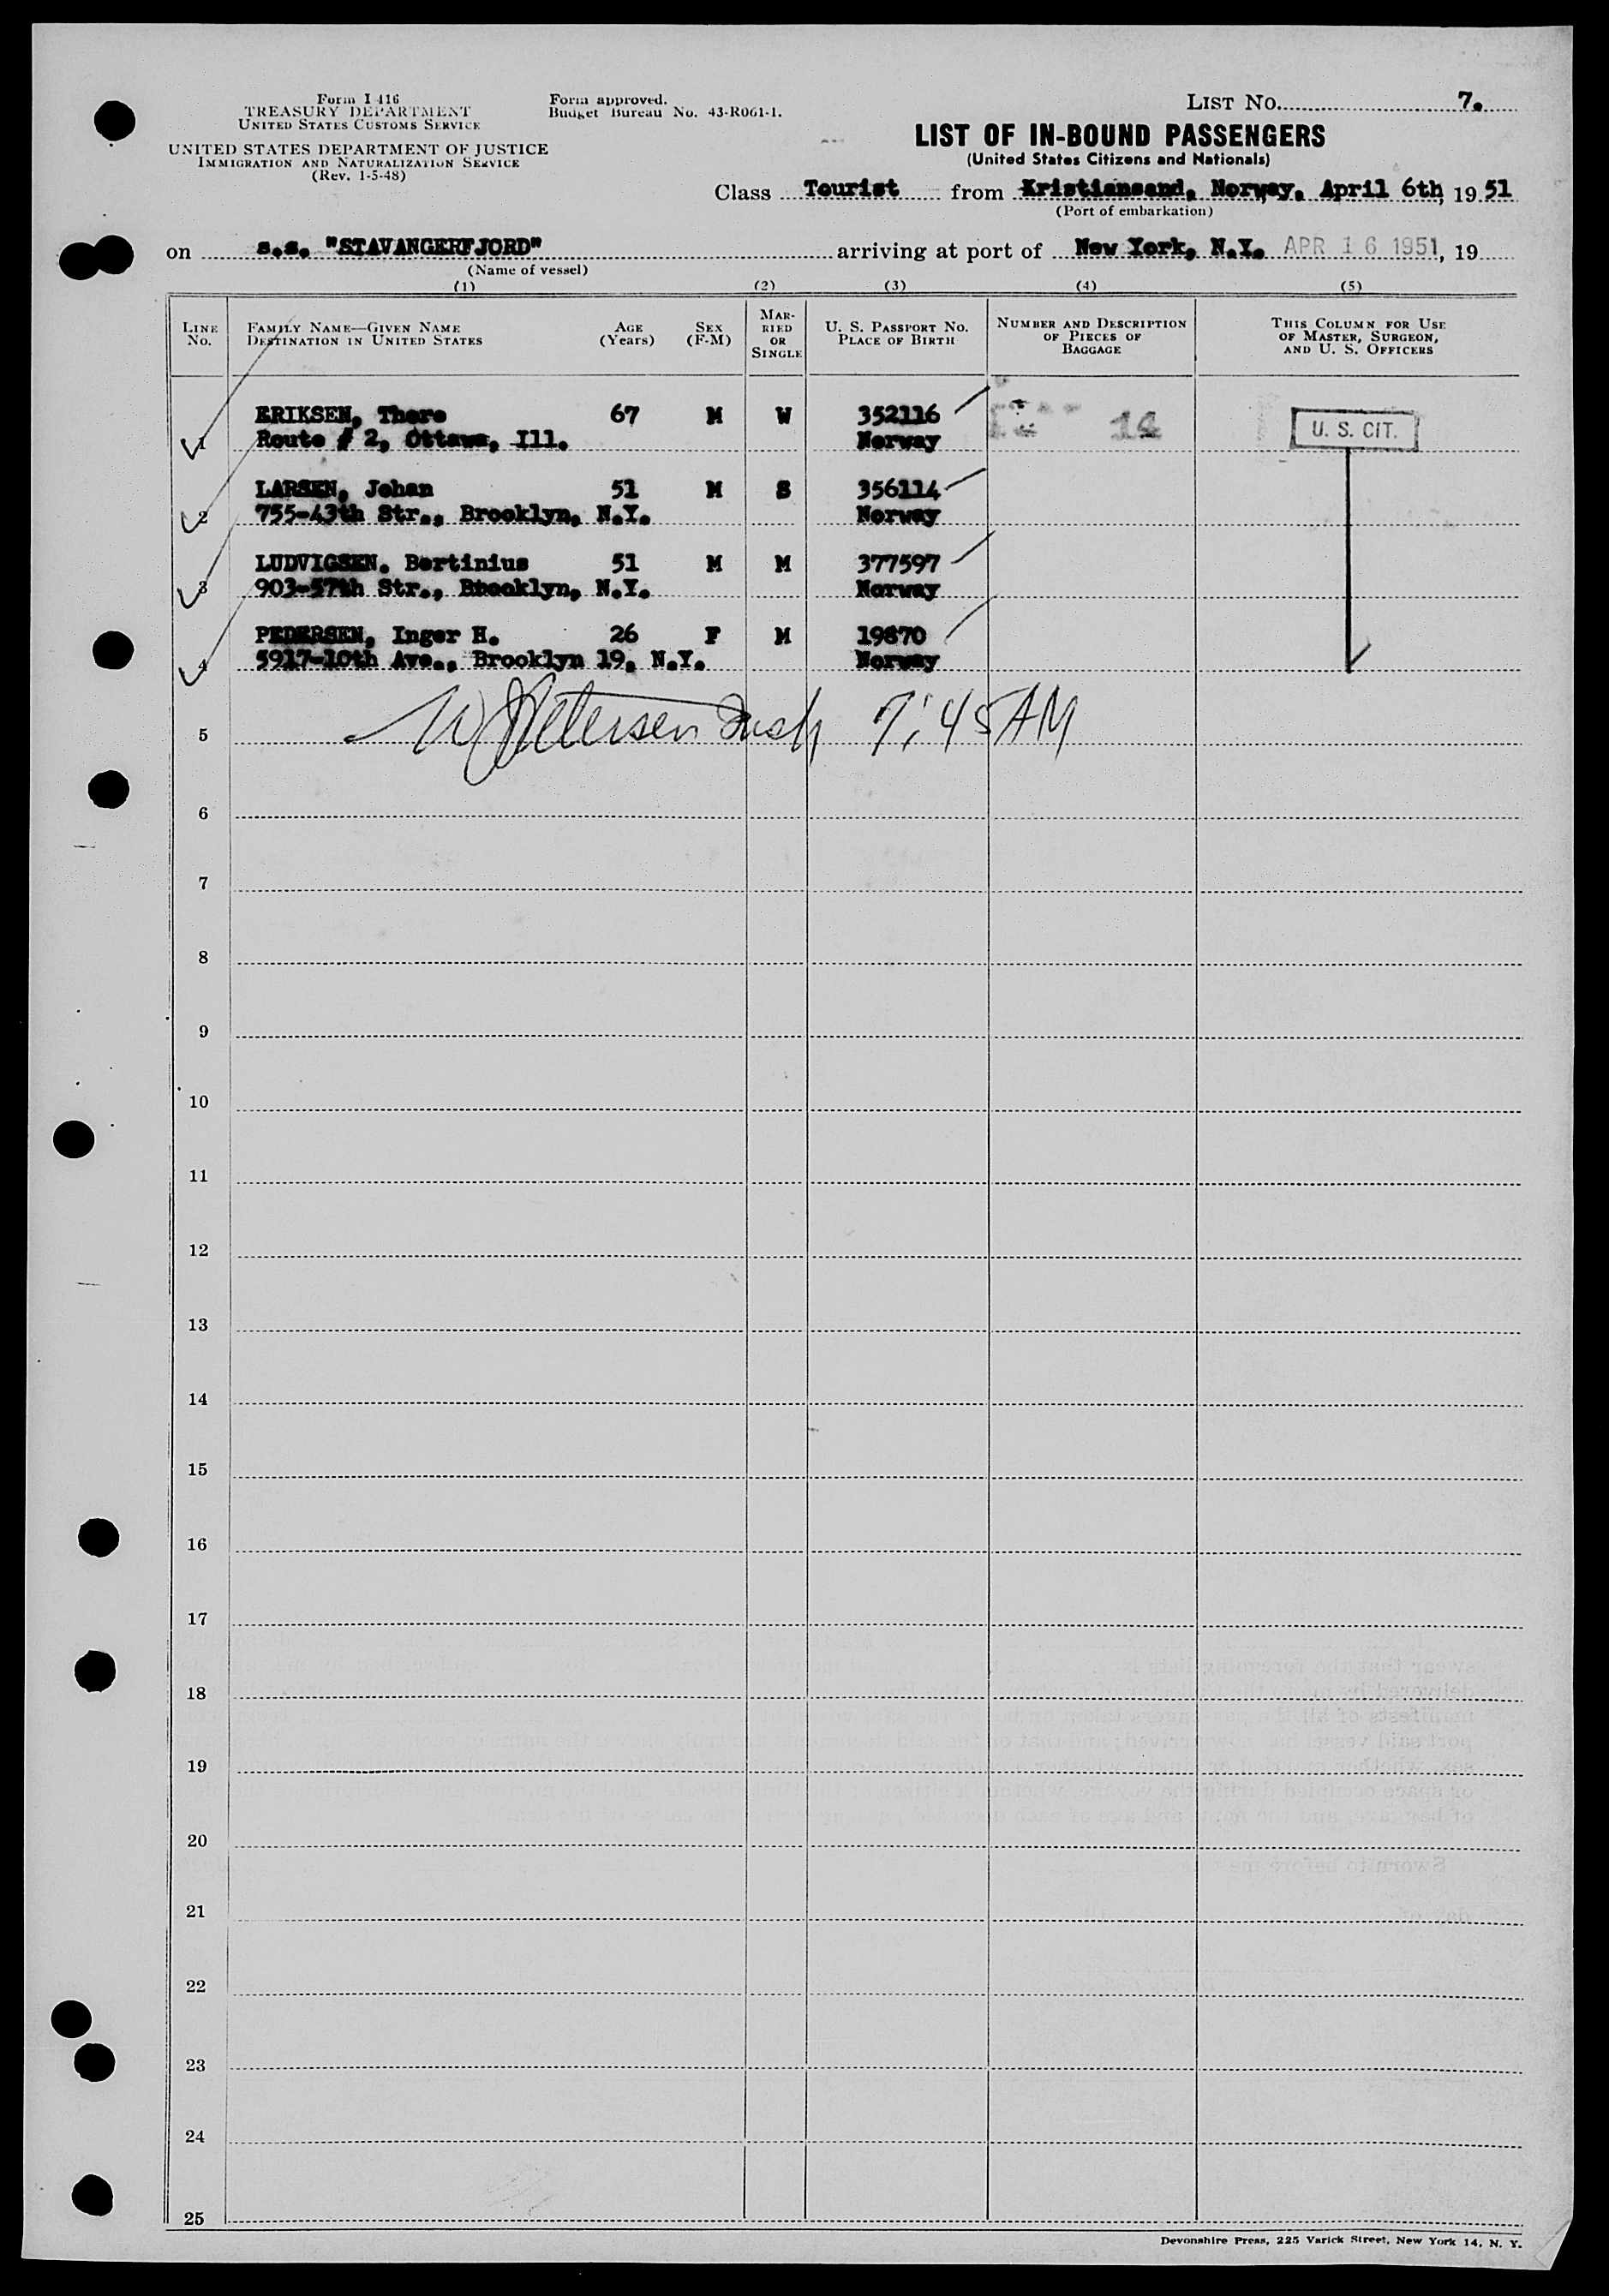 Form I 416
TREASURY DEPARTMENT
UNITED STATES CUSTOMS SERVICE
UNITED STATES DEPARTMENT OF JUSTICE
IMMIGRATION AND NATURALIZATION SERVICE
(Rev. 1-5-48)
Form approved.
Budget Bureau No. 43-R061-1.
LIST NO. 7.
LIST OF IN-BOUND PASSENGERS
(United States Citizens and Nationals)
Class Tourist from Kristiansand, Norway, April 6th, 19 51
(Port of embarkation)
on s.s. "STAVANGERFJORD" arriving at port of New York, N.Y. APR 16 1951, 19
(Name of vessel)
(1) (2) (3) (4) (5)
LINE NO. FAMILY NAME—GIVEN NAME DESTINATION IN UNITED STATES AGE (Years) SEX (F-M) MARRIED OR SINGLE U. S. PASSPORT NO. PLACE OF BIRTH NUMBER AND DESCRIPTION OF PIECES OF BAGGAGE THIS COLUMN FOR USE OF MASTER, SURGEON, AND U. S. OFFICERS
ERIKSEN, Thore 67 M W 352116 14 U. S. CIT.
1 Route # 2, Ottawa, Ill. Norway
LARSEN, Johan 51 M S 356114
2 755-43th Str., Brooklyn, N.Y. Norway
LUDVIGSEN. Bertinius 51 M M 377597
3 903-57th Str., Brooklyn, N.Y. Norway
PEDERSEN, Inger H. 26 F M 19870
4 5917-10th Ave., Brooklyn 19, N.Y. Norway
5 Petersen Insp 7:45 AM
6
7
8
9
10
11
12
13
14
15
16
17
18
19
20
21
22
23
24
25
Devonshire Press, 225 Varick Street, New York 14, N. Y.